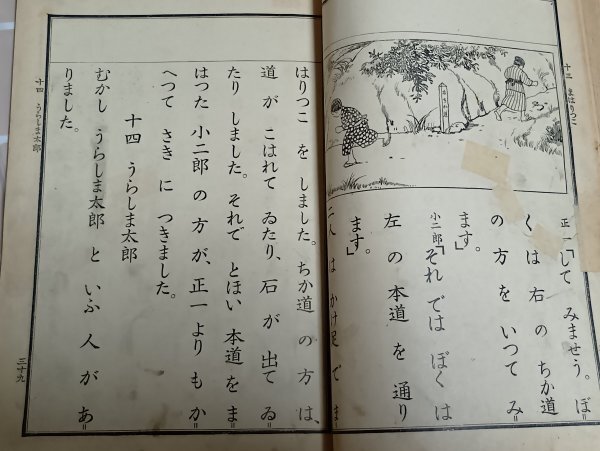 十三 まはりつこ
正一「して みませう。ぼ＝
くは 右 の ちか道
の 方 を いつて み＝
ます」。
小二郎「それ では ぼく は
左 の 本道 を 通り
ます」。
二人 は かけ足 で ま＝
はりつこ を しました。ちか道 の 方 は、
道 が こはれて ゐたり、石 が 出て ゐ＝
たり しました。それで とほい 本道 を ま＝
はつた 小二郎 の 方 が、正一 より も か＝
へつて さき に つきました。
十四 うらしま太郎
むかし うらしま太郎 と いふ 人 が あ＝
りました。
十四 うらしま太郎
三十九